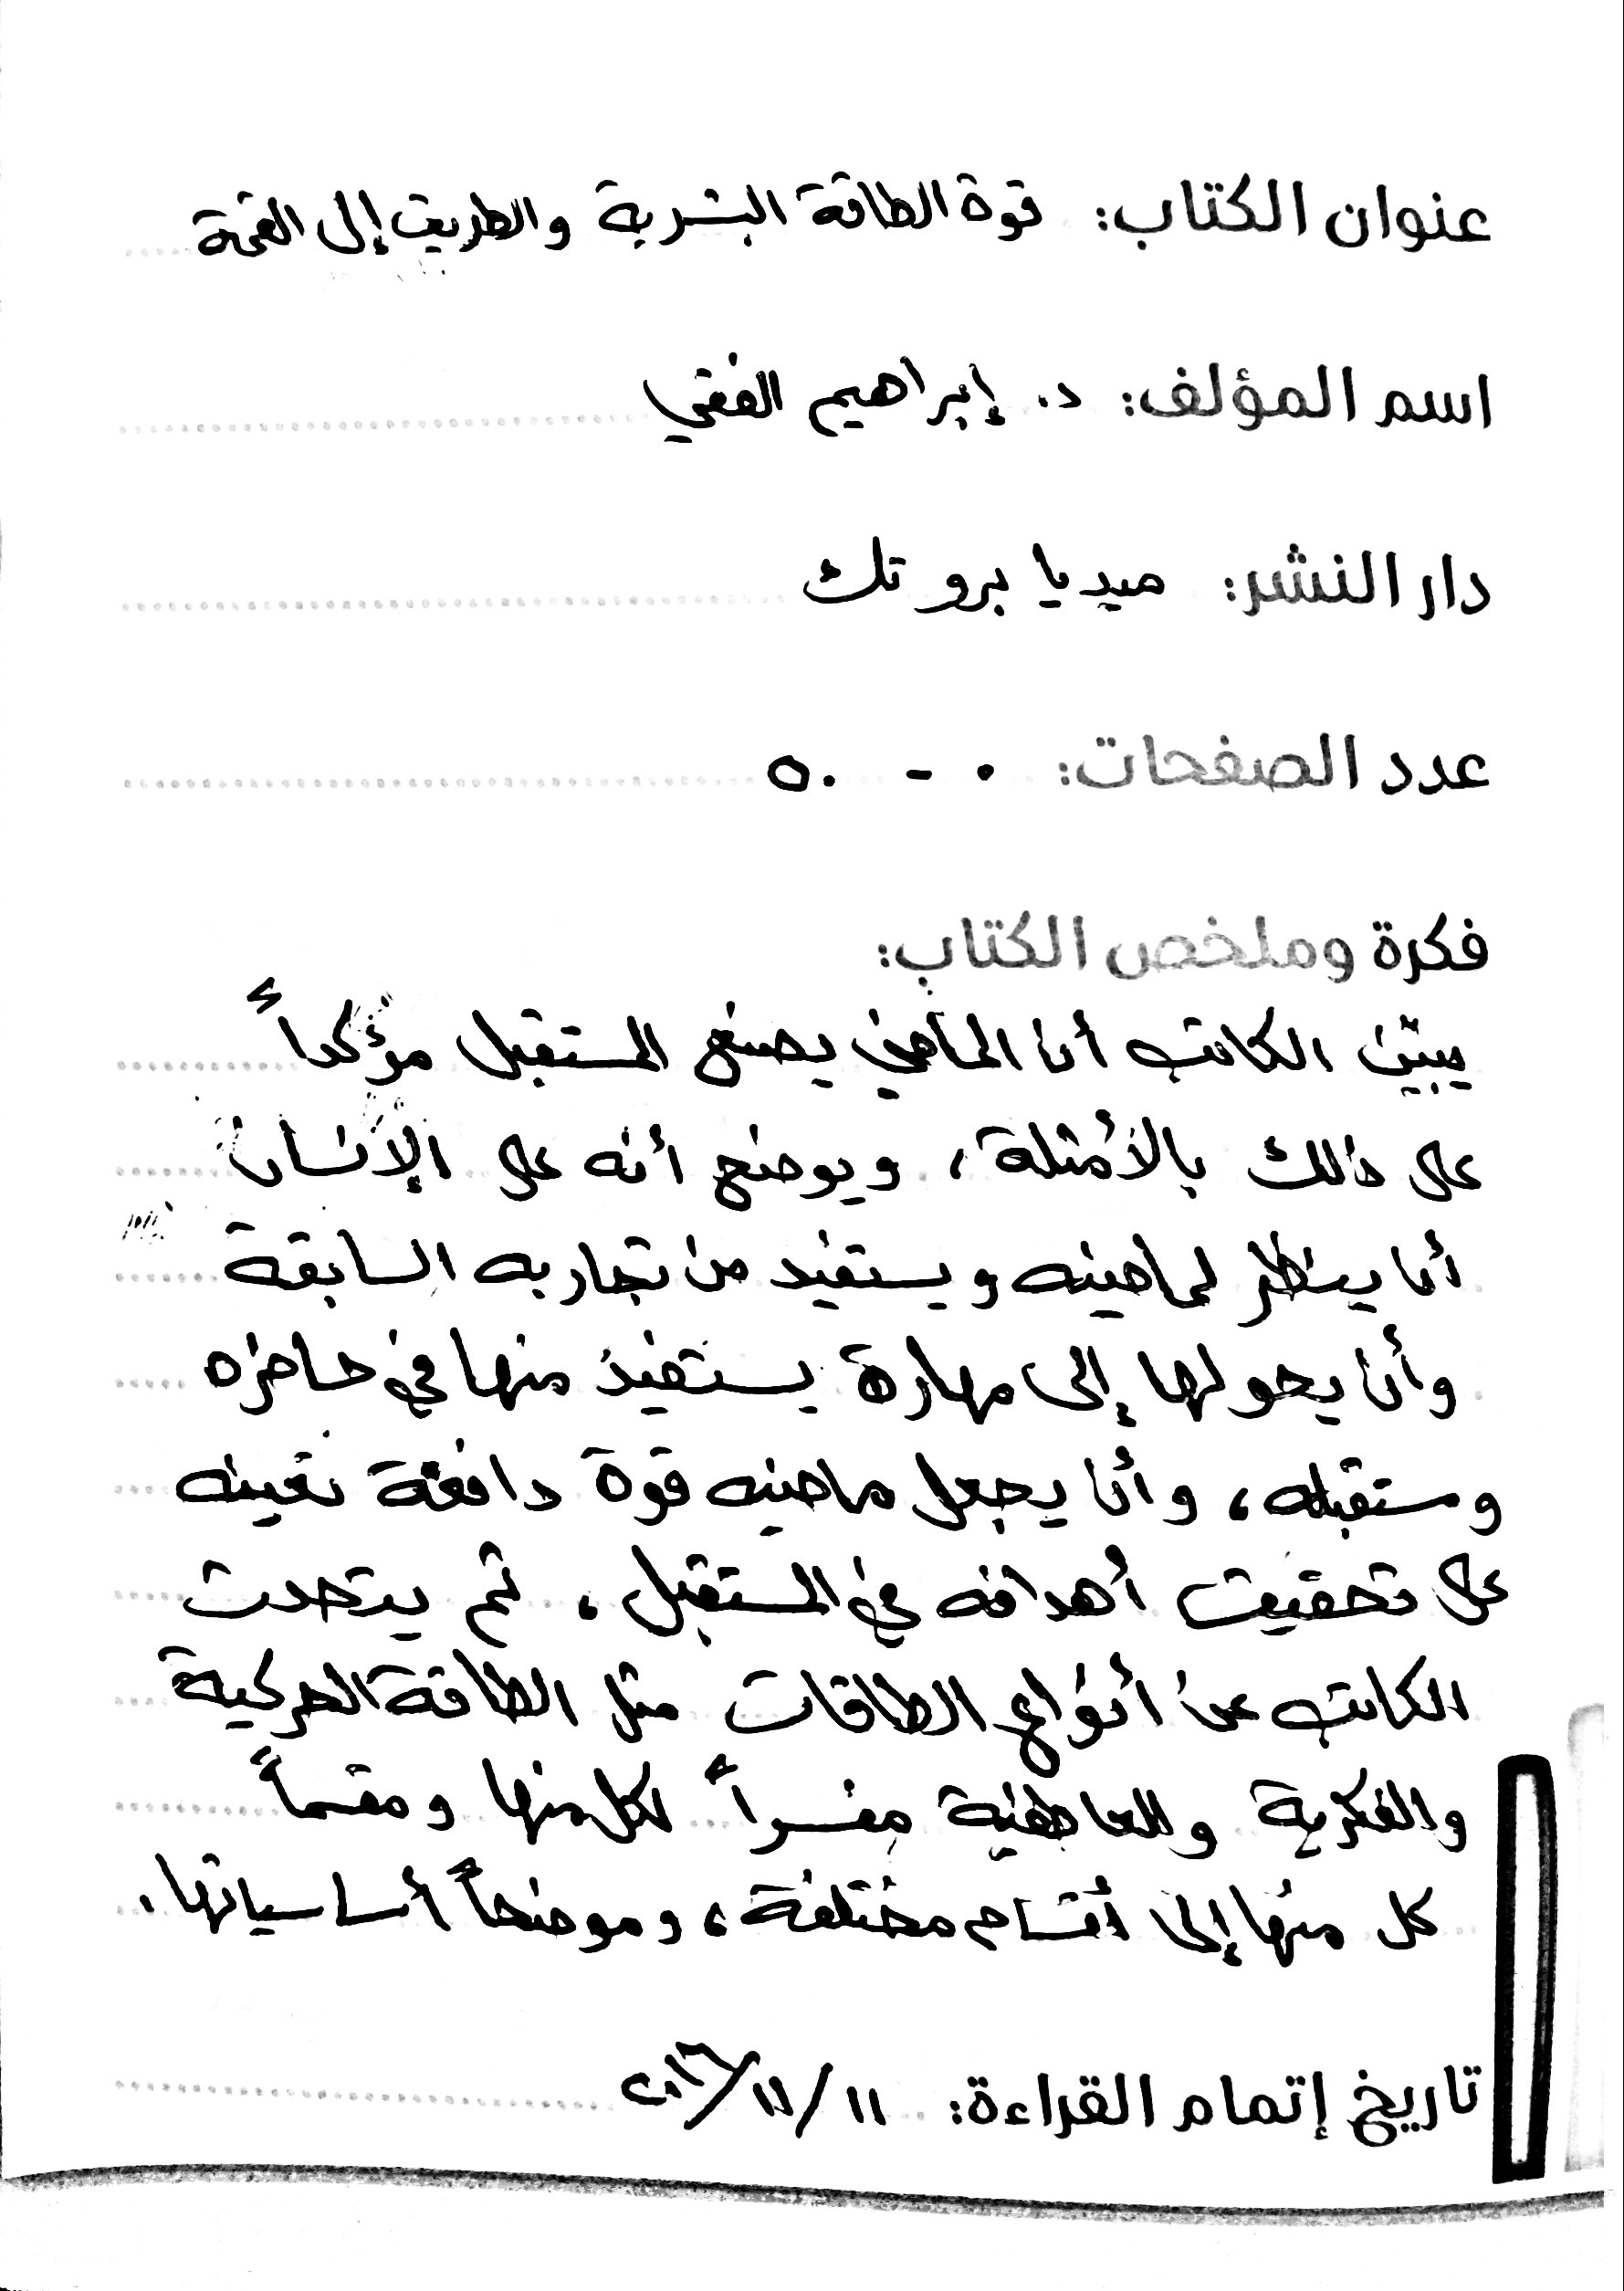 عنوان الكتاب: قوة الطاقة البشرية والطريق إلى القمة
اسم المؤلف: د. إبراهيم الفقي
دار النشر: ميديا بروتك
عدد الصفحات: ٠ - ٥٠
فكرة وملخص الكتاب:
يبيّن الكاتب أن الماضي يصنع المستقبل مؤكداً
على ذلك بالأمثلة، ويوضح أنه على الإنسان
أن ينظر لماضيه ويستفيد من تجاربه السابقة
وأن يحولها إلى مهارة يستفيد منها في حاضره
ومستقبله، وأن يجعل ماضيه قوة دافعة تعينه
على تحقيق أهدافه في المستقبل، ثم يتحدث
الكاتب عن أنواع الطاقات مثل الطاقة الحركية
والفكرية والعاطفية مفسراً لكل منها ومقسماً
كل منها إلى أقسام مختلفة، وموضحاً أساسياتها.
تاريخ إتمام القراءة: ١١/١١/٢٠١٦